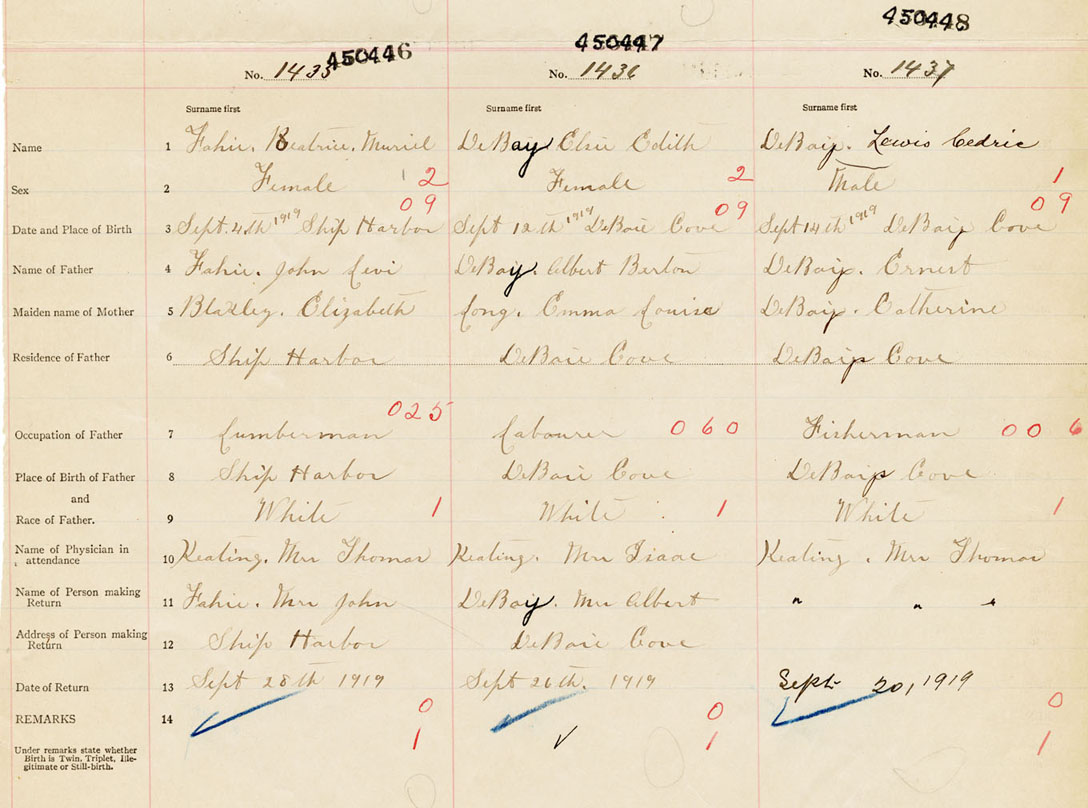 450446 450447 450448
No. 1435 No. 1436 No. 1437
Surname first Surname first Surname first
Name 1 Fahie. Beatrice. Muriel DeBay Elsie Edith DeBaiy. Lewis Cedric
Sex 2 Female 2 Female 2 Male 1
09 09 09
Date and Place of Birth 3 Sept. 4th 1919 Ship Harbor Sept 12th 1919 DeBaie Cove Sept 14th 1919 DeBaiy Cove
Name of Father 4 Fahie. John Levi DeBay. Albert Berton DeBaiy. Ernest
Maiden name of Mother 5 Blakley. Elizabeth Long. Emma Louise DeBaiy. Catherine
Residence of Father 6 Ship Harbor DeBaie Cove DeBaiy Cove
Occupation of Father 7 Lumberman 025 Labourer 060 Fisherman 006
Place of Birth of Father 8 Ship Harbor DeBaie Cove DeBaiy Cove
and
Race of Father. 9 White 1 White 1 White 1
Name of Physician in
attendance 10 Keating. Mrs Thomas Keating. Mrs Isaac Keating. Mrs Thomas
Name of Person making
Return 11 Fahie. Mrs John DeBay. Mrs Albert " " "
Address of Person making
Return 12 Ship Harbor DeBaie Cove
Date of Return 13 Sept 28th 1919 Sept 26th. 1919 Sept. 20, 1919
REMARKS 14 0 0 0
Under remarks state whether
Birth is Twin, Triplet, Ille-
gitimate or Still-birth. 1 1 1